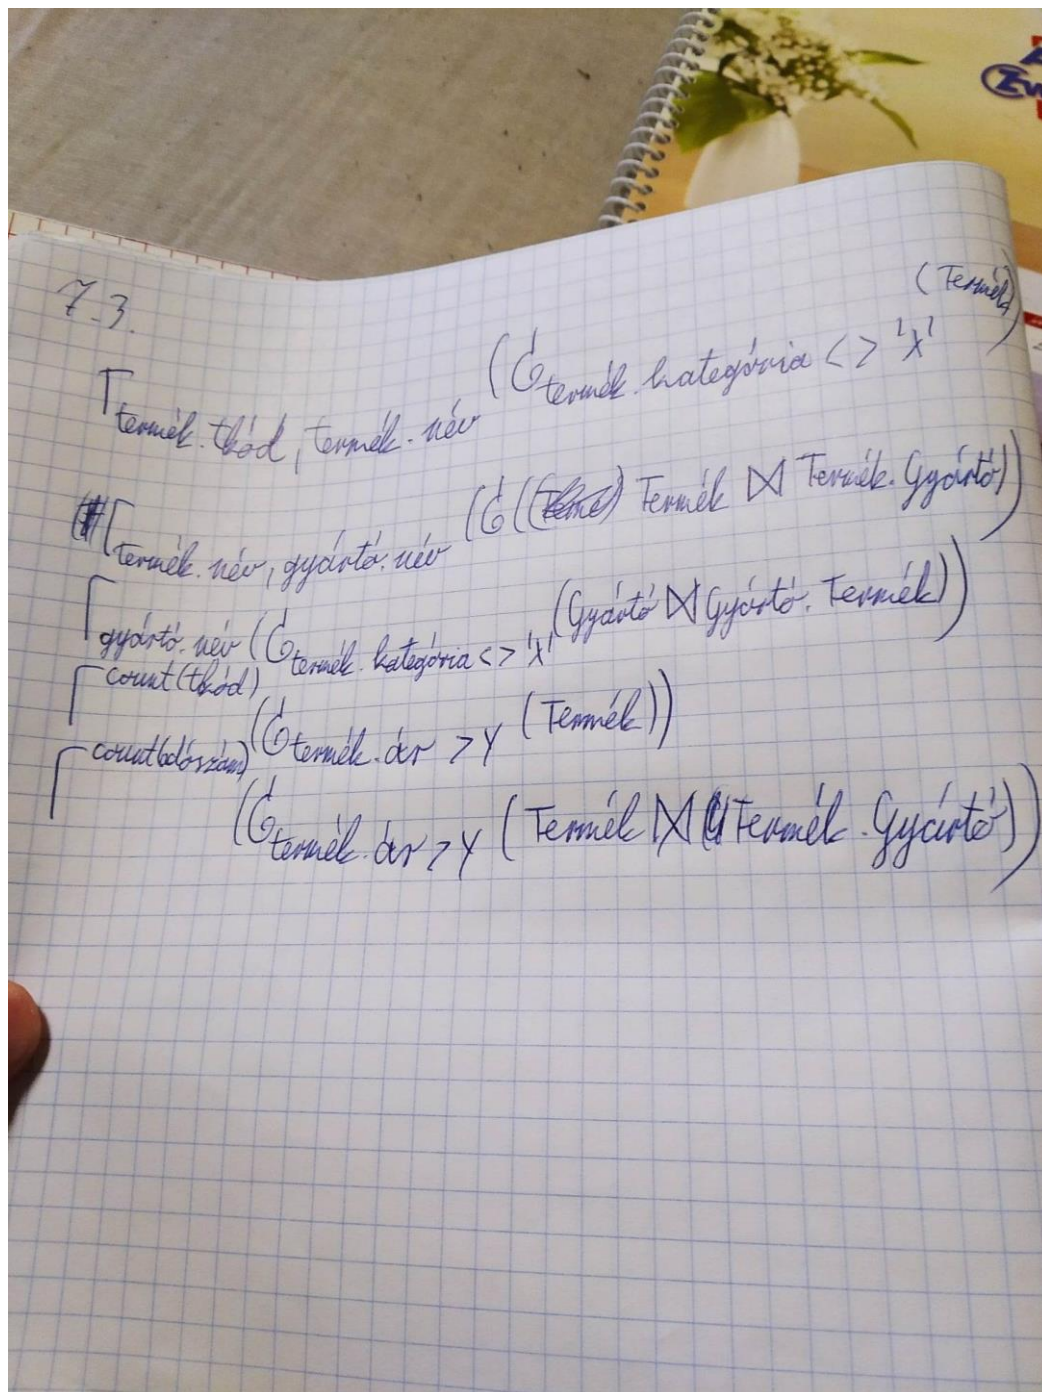 7.3.
Γ termék.tkód, termék.név (σ termék.kategória <> 'X' (Termék))
Γ termék.név, gyártó.név (σ( Termék ⋈ Termék.Gyártó))
Γ gyártó.név (σ termék.kategória <> 'X' (Gyártó ⋈ Gyártó.Termék))
Γ count(tkód) (σ termék.ár > Y (Termék))
Γ count(adószám) (σ termék.ár > Y (Termék ⋈ Termék.Gyártó))